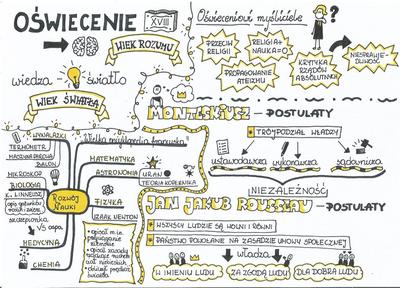 OŚWIECENIE
XVIII
WIEK ROZUMU
wiedza
światło
WIEK ŚWIATŁA
Oświeceniowi myśliciele
PRZECIW
RELIGII
RELIGIA +
NAUKA = 0
PROPAGOWANIE
ATEIZMU
KRYTYKA
RZĄDÓW
ABSOLUTNYCH
NIESPRAWIE-
DLIWOŚĆ
MONTESKIUSZ — POSTULATY
TRÓJPODZIAŁ WŁADZY
ustawodawcza
wykonawcza
sądownicza
NIEZALEŻNOŚĆ
JAN JAKUB ROUSSEAU — POSTULATY
WSZYSCY LUDZIE SĄ WOLNI I RÓWNI
PAŃSTWO POWOŁANE NA ZASADZIE UMOWY SPOŁECZNEJ
władza
W IMIENIU LUDU
ZA ZGODĄ LUDU
DLA DOBRA LUDU
Wielka encyklopedia francuska
ROZWÓJ
NAUKI
WYNALAZKI
TERMOMETR
MASZYNA PAROWA
BALON
MIKROSKOP
BIOLOGIA
K. LINNEUSZ
opis gatunków
roślin i zwierząt
szczepionka
VS ospa
MEDYCYNA
CHEMIA
MATEMATYKA
ASTRONOMIA
URAN
TEORIA KOPERNIKA
FIZYKA
IZAAK NEWTON